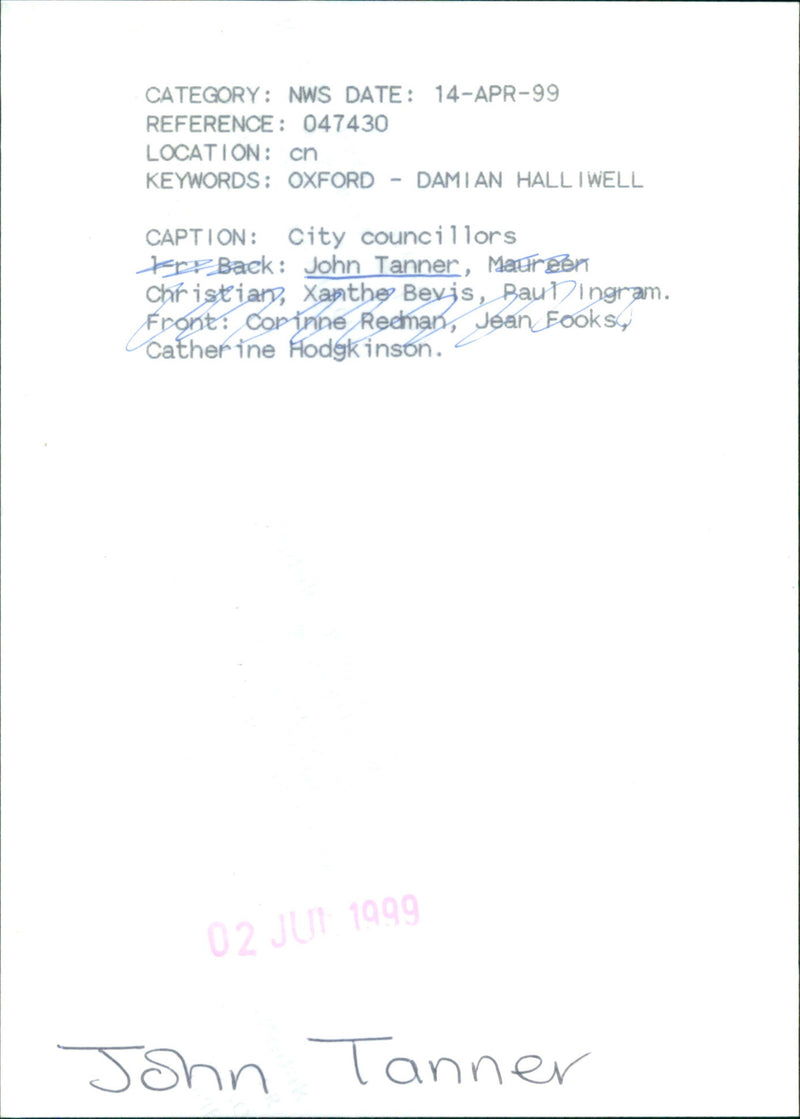 CATEGORY: NWS DATE: 14-APR-99
REFERENCE: 047430
LOCATION: cn
KEYWORDS: OXFORD - DAMIAN HALLIWELL
CAPTION: City councillors
lr: Back: John Tanner, Maureen
Christian, Xanthe Bevis, Paul Ingram.
Front: Corinne Redman, Jean Fooks,
Catherine Hodgkinson.
02 JUL 1999
John Tanner